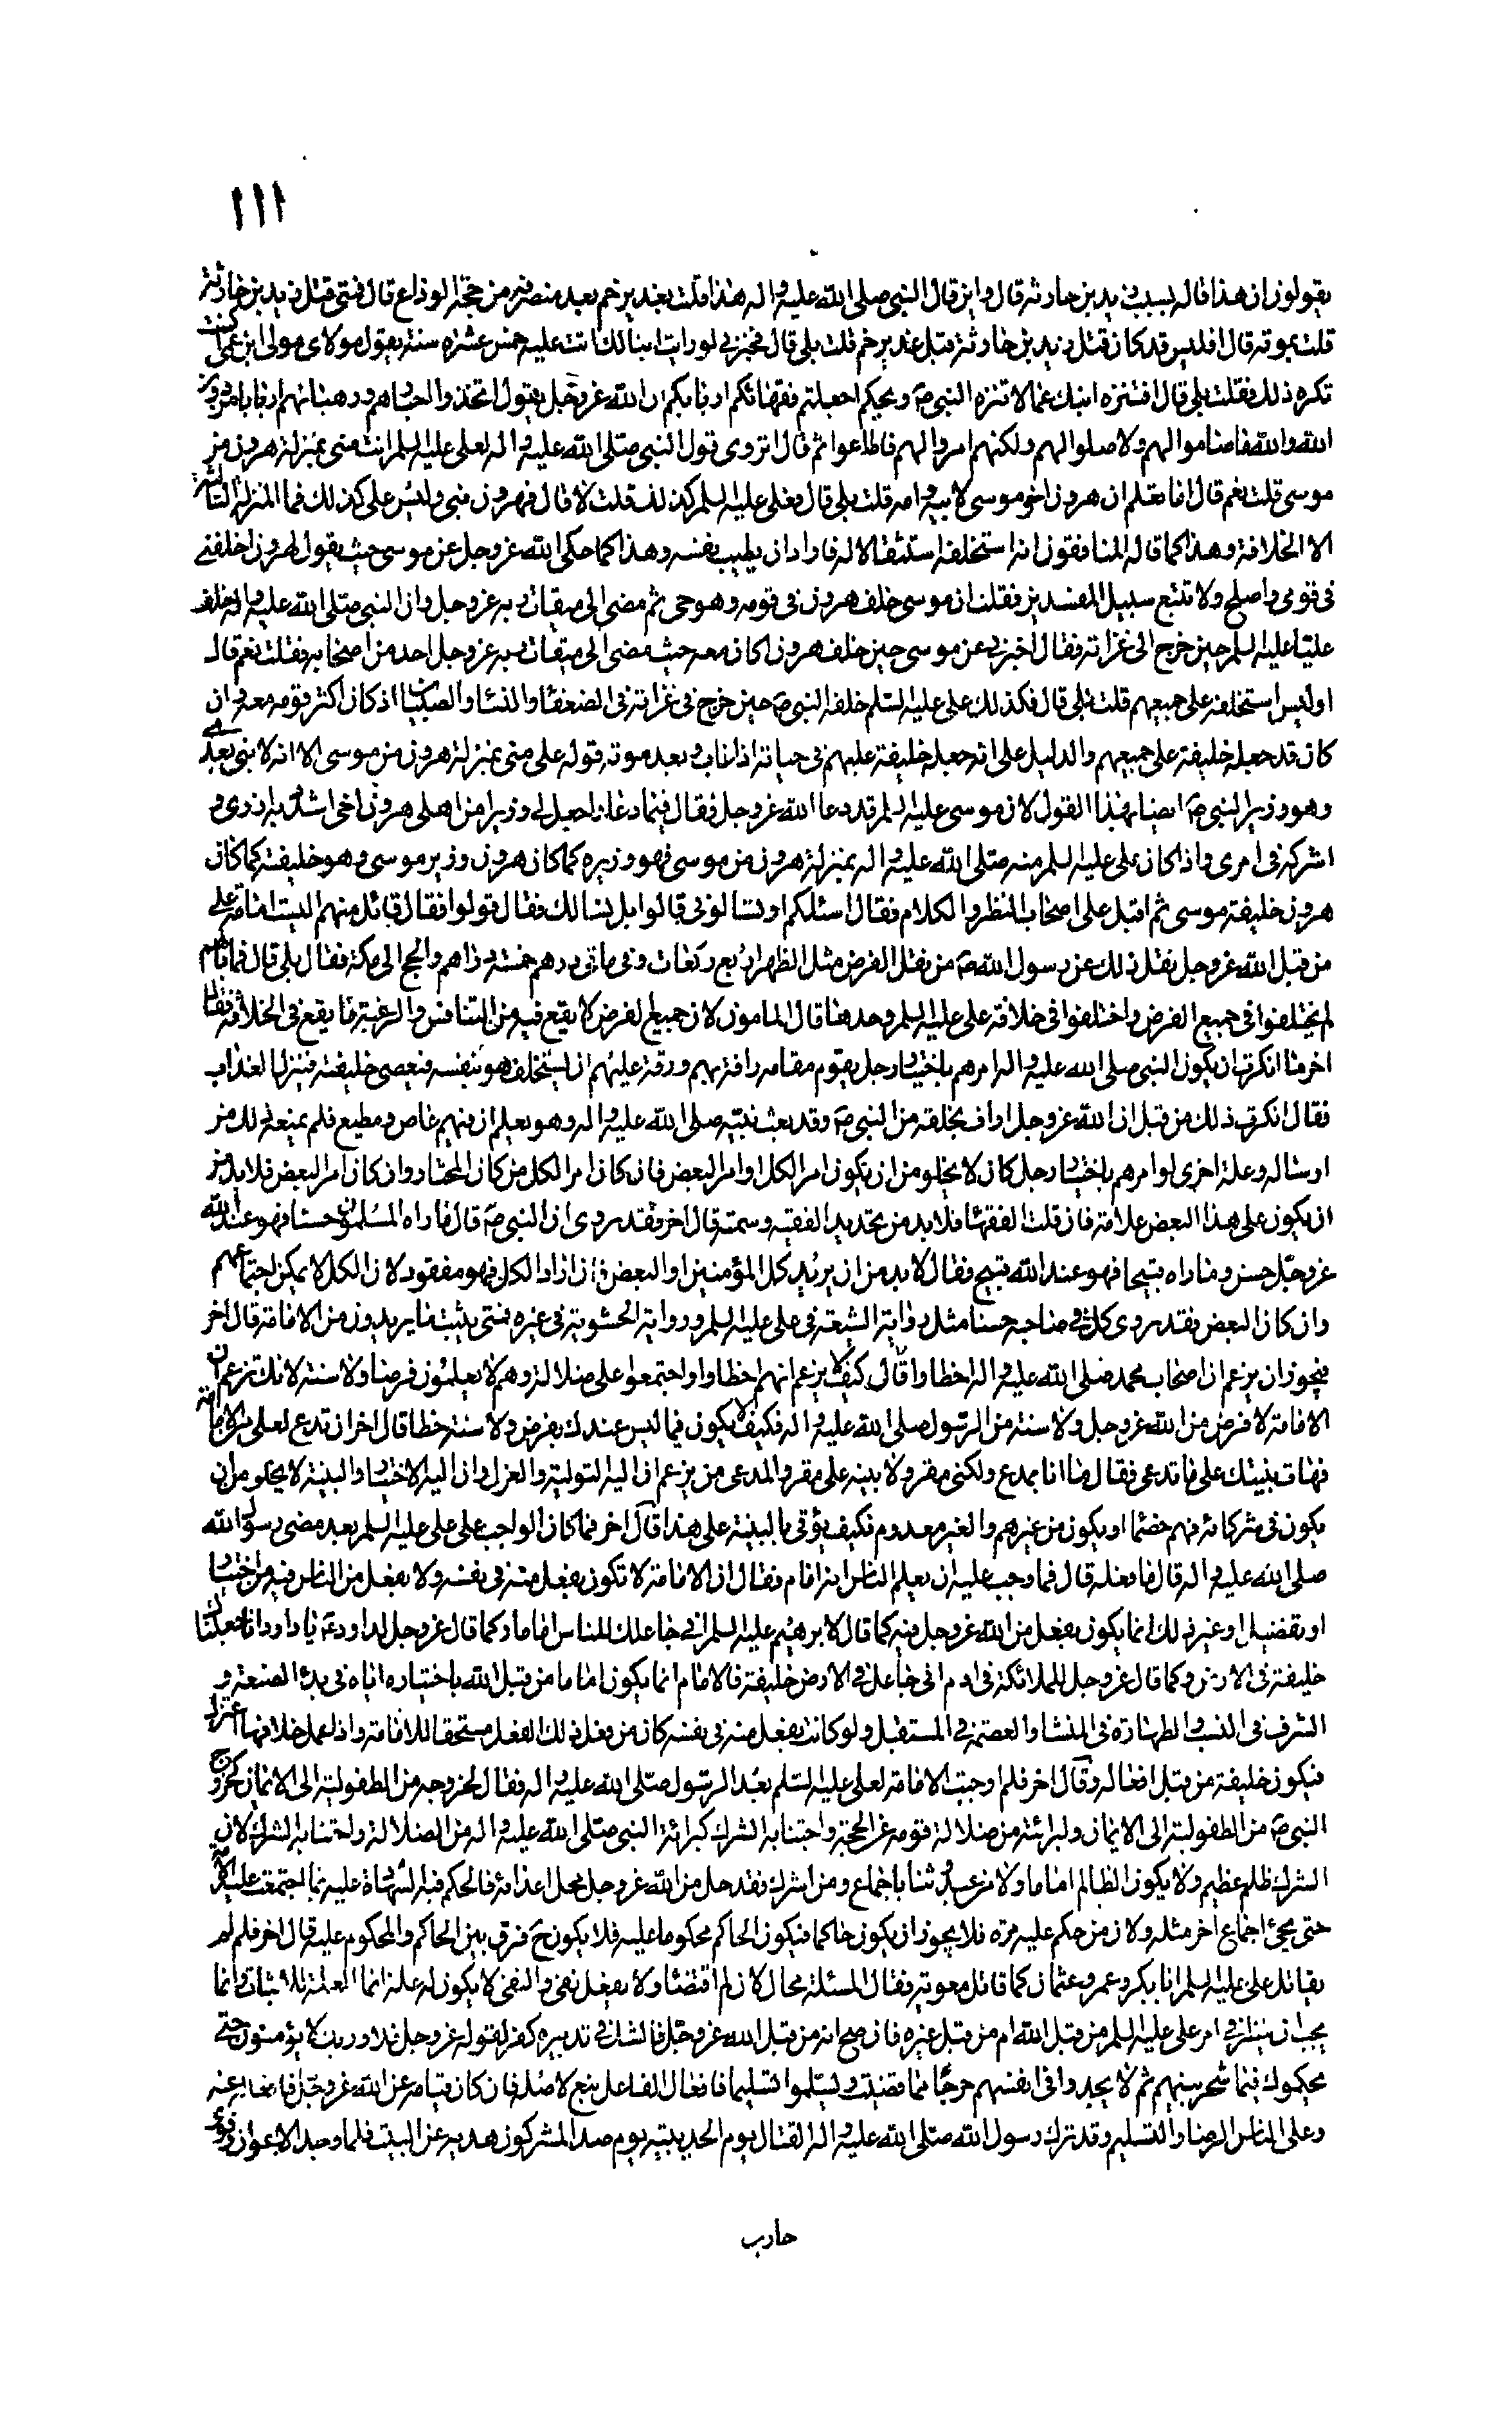 ١١١
يقولون ان هذا قاله بسبب زيد بن حارثة قال واين قال النبي صلى الله عليه واله هذا قلت بغدير خم بعد منصرفه من حجة الوداع قال فمتى قتل زيد بن حارثة
قلت بموته قال افليس قد كان قتل زيد بن حارثة قبل غدير خم قلت بلى قال فخبرني لو رايت ابنا لك اتت عليه خمس عشره سنة يقول مولاى مولى ابن عمى اكنت
تكره ذلك فقلت بلى قال افتنزه ابنك عما لا تنزه النبي ص ويحكم اجعلتم فقهائكم اربابكم ان الله عز وجل يقول اتخذوا احبارهم ورهبانهم اربابا من دون
الله والله ما صاموا لهم ولا صلوا لهم ولكنهم امروا لهم فاطاعوا ثم قال اتروى قول النبي صلى الله عليه واله لعلى عليه السلم انت منى بمنزلة هرون من
موسى قلت نعم قال اما تعلم ان هرون اخو موسى لابيه وامه قلت بلى قال فعلى عليه السلم كذلك قلت لا قال فهرون نبى وليس على كذلك فما المنزلة الثالثة
الا الخلافة وهذا كما قاله المنافقون انه استخلفه استثقالا له فاراد ان يطيب نفسه وهذا كما حكى الله عز وجل عن موسى حيث يقول لهرون اخلفنى
فى قومى واصلح ولا تتبع سبيل المفسدين فقلت ان موسى خلف هرون فى قومه وهو حى ثم مضى الى ميقات ربه عز وجل وان النبي صلى الله عليه واله خلف
عليا عليه السلم حين خرج الى غزاته فقال اخبرنى عن موسى حين خلف هرون اكان معه حيث مضى الى ميقات ربه عز وجل احد من اصحابه فقلت نعم قال
اوليس استخلفه على جميعهم قلت بلى قال فكذلك على عليه السلم خلفه النبي ص حين خرج فى غزاته فى الضعفاء والنساء والصبيان اذ كان اكثر قومه معه وان
كان قد جعله خليفة على جميعهم والدليل على انه جعله خليفة عليهم فى حياته اذا غاب وبعد موته قوله على منى بمنزلة هرون من موسى الا انه لا نبى بعدى
وهو وزير النبي ص ايضا بهذا القول لان موسى عليه السلم قد دعا الله عز وجل فقال فيما دعا واجعل لى وزيرا من اهلى هرون اخى اشدد به ازرى و
اشركه فى امرى واذا كان على عليه السلم منه صلى الله عليه واله بمنزلة هرون من موسى فهو وزيره كما كان هرون وزير موسى وهو خليفته كما كان
هرون خليفة موسى ثم اقبل على اصحاب النظر والكلام فقال اسئلكم او تسالونى قالوا بل نسالك فقال قولوا فقال قائل منهم اليست امامة على
من قبل الله عز وجل نقل ذلك عن رسول الله ص من نقل الفرض مثل الظهر اربع ركعات وفى مائتى درهم خمسة دراهم والحج الى مكة فقال بلى قال فما بالهم
لم يختلفوا فى جميع الفرض واختلفوا فى خلافة على عليه السلم وحدها قال المامون لان جميع الفرض لا يقع فيه من التنافس والرغبة ما يقع فى الخلافة فقال
اخر ما انكرت ان يكون النبي صلى الله عليه واله امرهم باختيار رجل يقوم مقامه رافة بهم ورقة عليهم ان يستخلف هو بنفسه فيعصى خليفته فينزل العذاب
فقال انكرت ذلك من قبل ان الله عز وجل اراف بخلقه من النبي ص وقد بعث نبيه صلى الله عليه واله وهو يعلم ان فيهم عاص ومطيع فلم يمنعه ذلك من
ارساله وعلة اخرى لو امرهم باختيار رجل كان لا يخلو من ان يكون امر الكل او امر البعض فان كان امر الكل من كان المختار وان كان امر البعض فلا بد من
ان يكون على هذا البعض علامة فان قلت الفقهاء فلا بد من تحديد الفقيه وسمته قال اخر فقد روى ان النبي ص قال ما راه المسلمون حسنا فهو عند الله
عز وجل حسن وما راه قبيحا فهو عند الله قبيح فقال لا بد من ان يريد كل المؤمنين او البعض فان اراد الكل فهو مفقود لان الكل لا يمكن اجتماعهم
وان كان البعض فقد روى كل فى صاحبه حسنا مثل رواية الشيعة فى على عليه السلم ورواية الحشوية فى غيره فمتى يثبت ما يريدون من الامامة قال اخر
فيجوز ان يزعم ان اصحاب محمد صلى الله عليه واله اخطاوا قال كيف يزعم انهم اخطاوا واجتمعوا على ضلالة وهم لا يعلمون فرضا ولا سنة لانك تزعم ان
الامامة لا فرض من الله عز وجل ولا سنة من الرسول صلى الله عليه واله فكيف يكون فيما ليس عندك بفرض ولا سنة خطا قال اخر ان تدع لعلى من الامامة
فهات بينتك على ما تدعى فقال ما انا بمدع ولكنى مقر ولا بينة على مقر والمدعى من يزعم ان اليه التولية والعزل وان اليه الاختيار والبينة لا يخلو من ان
يكون فى شركائه فهم خصماء او يكون من غيرهم والغير معدوم فكيف يؤتى بالبينة على هذا قال اخر فما كان الواجب على على عليه السلم بعد مضى رسول الله
صلى الله عليه واله قال ما فعله قال فما وجب عليه ان يعلم الناس انه امام فقال ان الامامة لا تكون بفعل منه فى نفسه ولا بفعل من الناس فيه من اختيار
او تفضيل او غير ذلك انما يكون بفعل من الله عز وجل فيه كما قال لابرهيم عليه السلم انى جاعلك للناس اماما وكما قال عز وجل لداود ع يا داود انا جعلناك
خليفة فى الارض وكما قال عز وجل للملائكة فى ادم انى جاعل فى الارض خليفة فالامام انما يكون اماما من قبل الله باختياره اياه فى بدء الصنعة و
الشرف فى النسب والطهارة فى المنشا والعصمة فى المستقبل ولو كانت بفعل منه فى نفسه كان من فعل ذلك الفعل مستحقا للامامة واذا عمل خلافها اعتزل
فيكون خليفة من قبل افعاله وقال اخر فلم اوجبت الامامة لعلى عليه السلم بعد الرسول صلى الله عليه واله فقال لخروجه من الطفولية الى الايمان كخروج
النبي ص من الطفولية الى الايمان ولبرائته من ضلالة قومه عن الحجة واجتنابه الشرك كبرائة النبي صلى الله عليه واله من الضلالة واجتنابه الشرك لان
الشرك ظلم عظيم ولا يكون الظالم اماما ولا من عبد وثنا باجماع ومن اشرك فقد حل من الله عز وجل محل اعدائه فالحكم فيه الشهادة عليه بما اجتمعت عليه الامة
حتى يجئ اجماع اخر مثله ولان من حكم عليه مرة فلا يجوز ان يكون حاكما فيكون الحاكم محكوما عليه فلا يكون ح فرق بين الحاكم والمحكوم عليه قال اخر فلم لم
يقاتل على عليه السلم ابا بكر وعمر وعثمان كما قاتل معوية فقال المسئلة محال لان لم اقتضاء ولا يفعل نفى والنفى لا يكون له علة انما العلة للاثبات وانما
يجب ان ينظر فى امر على عليه السلم من قبل الله ام من قبل غيره فان صح انه من قبل الله عز وجل فالشك فى تدبيره كفر لقوله عز وجل فلا وربك لا يؤمنون حتى
يحكموك فيما شجر بينهم ثم لا يجدوا فى انفسهم حرجا مما قضيت ويسلموا تسليما فافعال الفاعل تبع لاصله فان كان قيامه عن الله عز وجل فافعاله عنه
وعلى الناس الرضا والتسليم وقد ترك رسول الله صلى الله عليه واله القتال يوم الحديبية يوم صد المشركون هديه عن البيت فلما وجد الاعوان وقوى
حارب